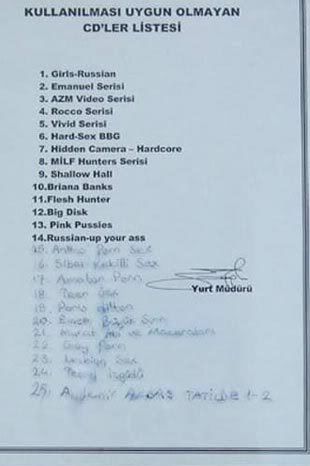 KULLANILMASI UYGUN OLMAYAN
CD'LER LİSTESİ
1. Girls-Russian
2. Emanuel Serisi
3. AZM Video Serisi
4. Rocco Serisi
5. Vivid Serisi
6. Hard-Sex BBG
7. Hidden Camera – Hardcore
8. MİLF Hunters Serisi
9. Shallow Hall
10.Briana Banks
11.Flesh Hunter
12.Big Disk
13. Pink Pussies
14.Russian-up your ass
15. Porn Sex
16. Sibel Kekilli Sex
17. Amatör Porn
Yurt Müdürü
18. Teen Sex
19. Paris Hilton
20.
21. Murat ve Maceraları
22. Gay Porn
23. Lesbian Sex
24.
25. TATİLDE 1-2